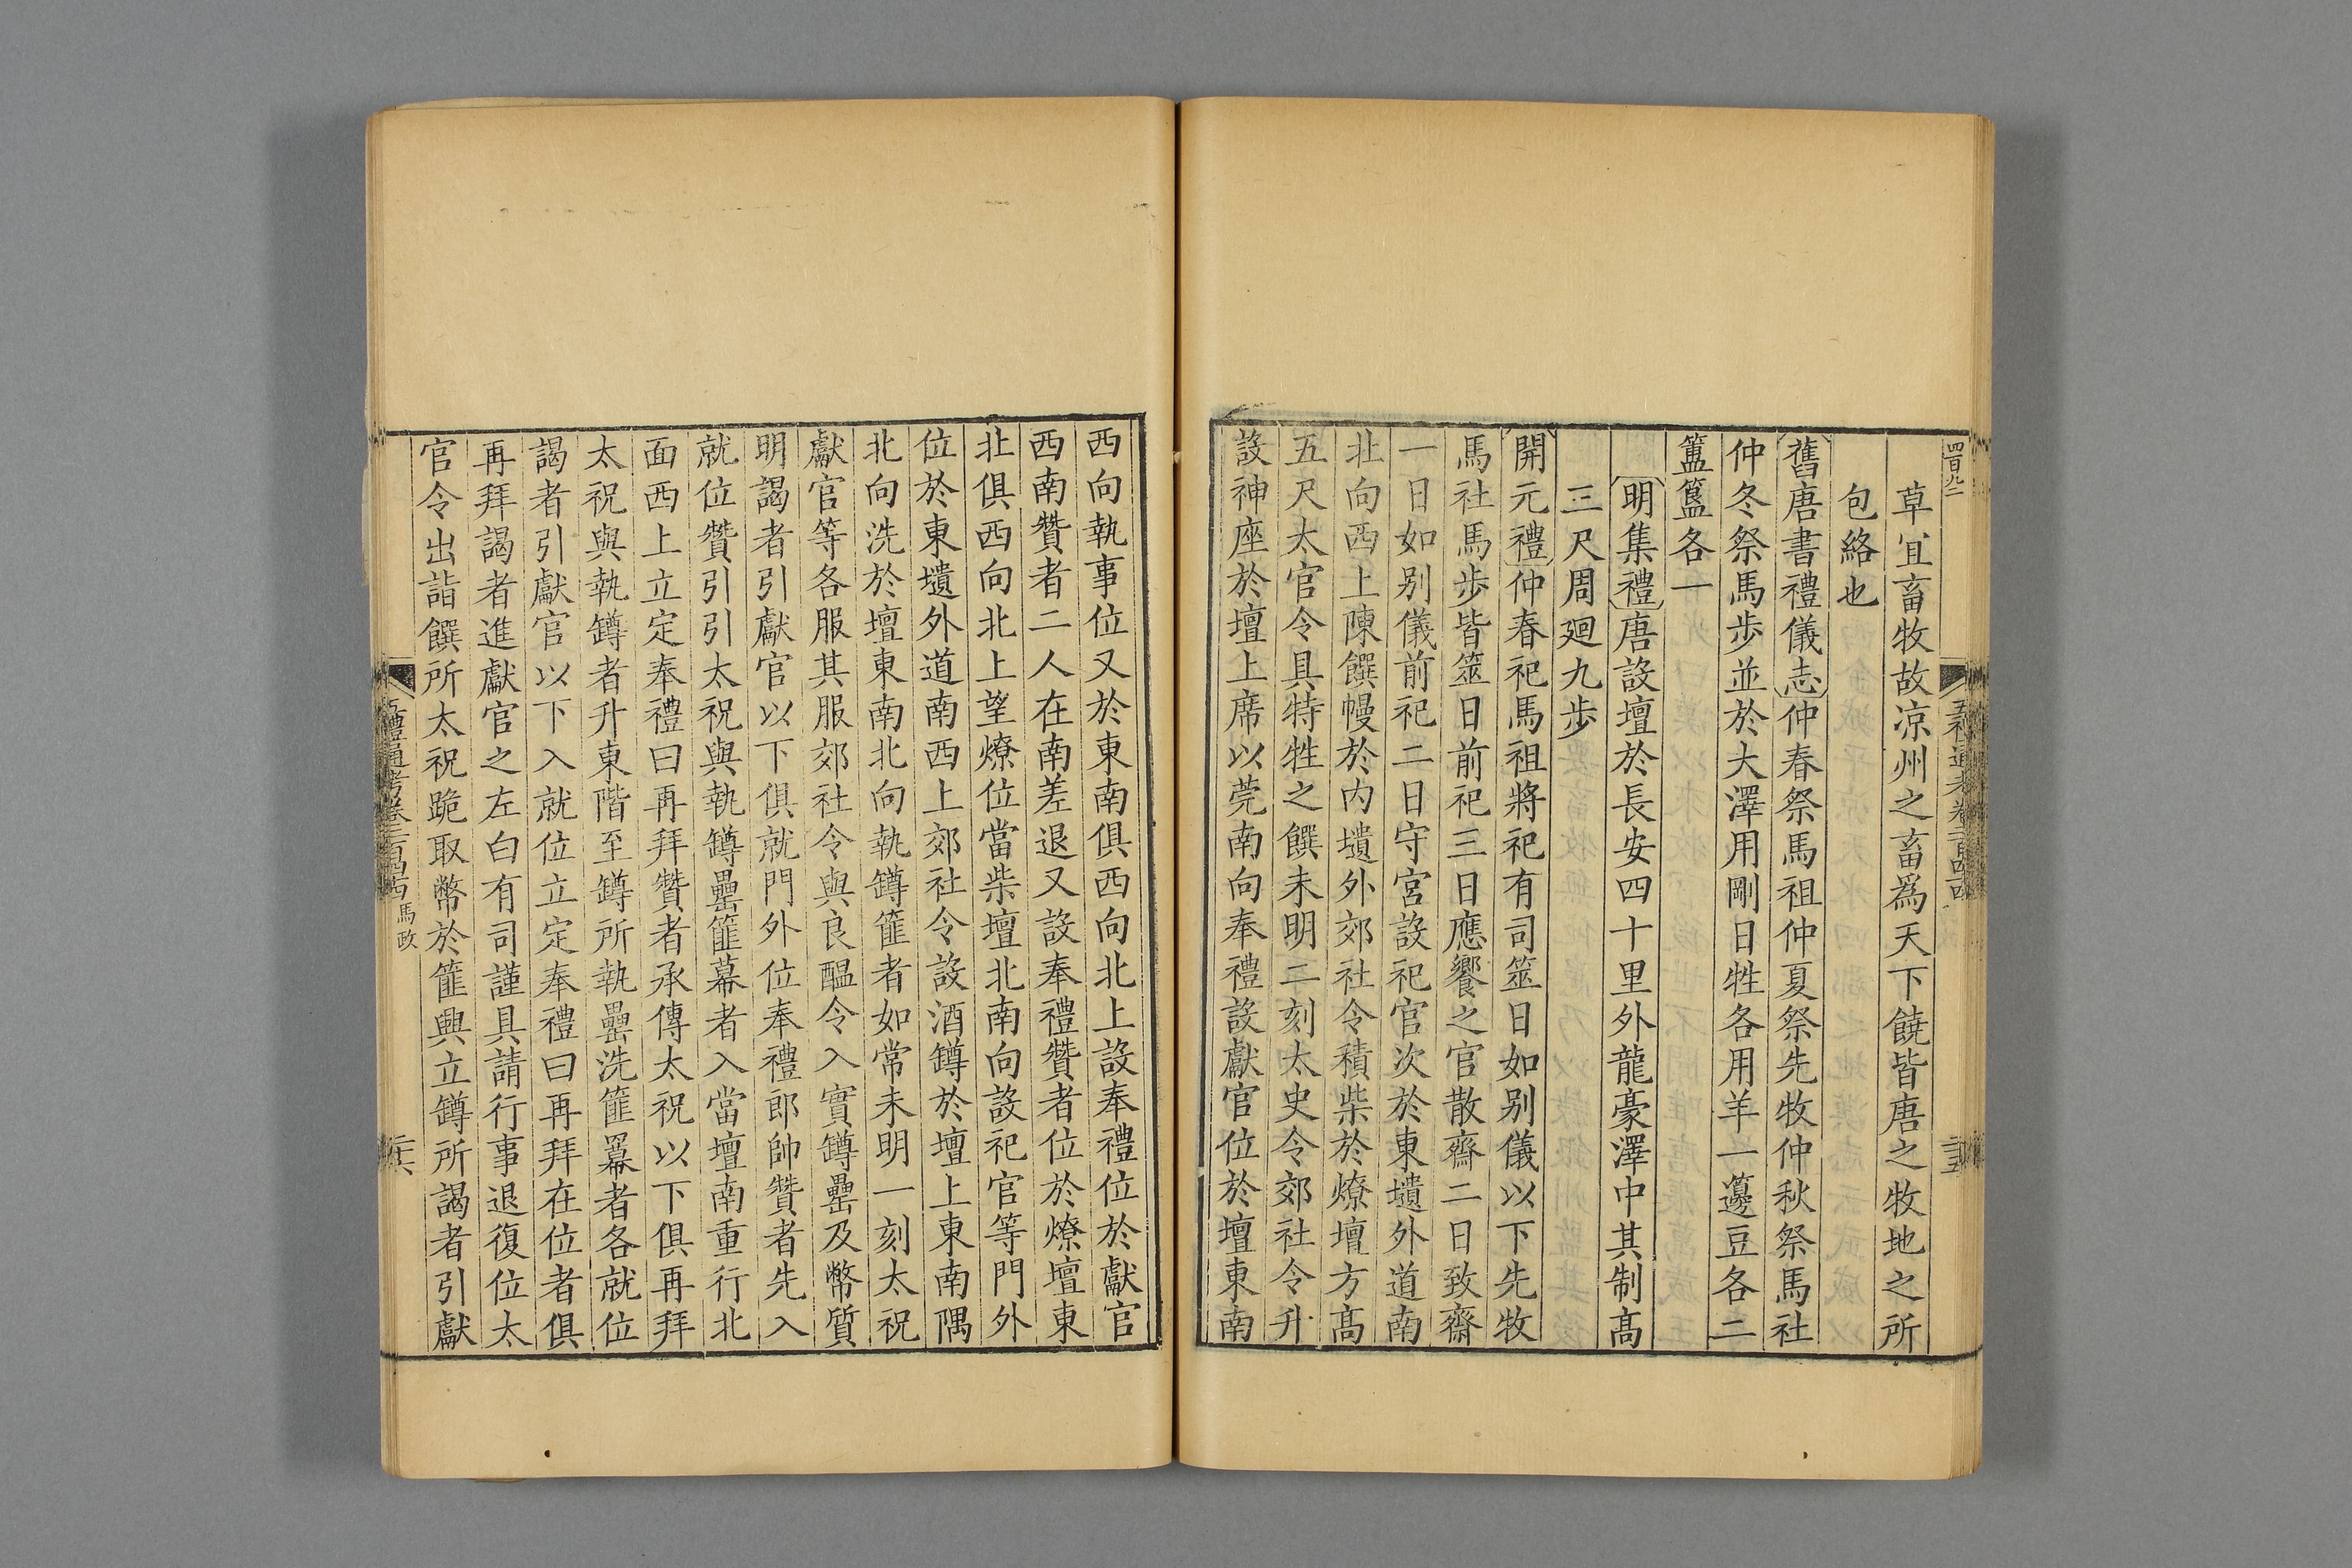 四百九二
五礼通考卷二百四十四
草宜畜牧故凉州之畜爲天下饒皆唐之牧地之所
包絡也
舊唐書禮儀志仲春祭馬祖仲夏祭先牧仲秋祭馬社
仲冬祭馬步並於大澤用剛日牲各用羊一籩豆各二
簠簋各一
明集禮唐設壇於長安四十里外龍豪澤中其制高
三尺周廻九步
開元禮仲春祀馬祖將祀有司筮日如别儀以下先牧
馬社馬步皆筮日前祀三日應饗之官散齋二日致齋
一日如别儀前祀二日守宮設祀官次於東壝外道南
北向西上陳饌幔於内壝外郊社令積柴於燎壇方高
五尺太官令具特牲之饌未明二刻太史令郊社令升
設神座於壇上席以莞南向奉禮設獻官位於壇東南
西向執事位又於東南俱西向北上設奉禮位於獻官
西南贊者二人在南差退又設奉禮贊者位於燎壇東
北俱西向北上望燎位當柴壇北南向設祀官等門外
位於東壝外道南西上郊社令設酒罇於壇上東南隅
北向洗於壇東南北向執罇篚者如常未明一刻太祝
獻官等各服其服郊社令與良醖令入實罇罍及幣質
明謁者引獻官以下俱就門外位奉禮郎帥贊者先入
就位贊引引太祝與執罇罍篚幕者入當壇南重行北
面西上立定奉禮曰再拜贊者承傳太祝以下俱再拜
太祝與執罇者升東階至罇所執罍洗篚羃者各就位
謁者引獻官以下入就位立定奉禮曰再拜在位者俱
再拜謁者進獻官之左白有司謹具請行事退復位太
官令出詣饌所太祝跪取幣於篚興立罇所謁者引獻
五禮通考卷二百四十四 馬政
二六